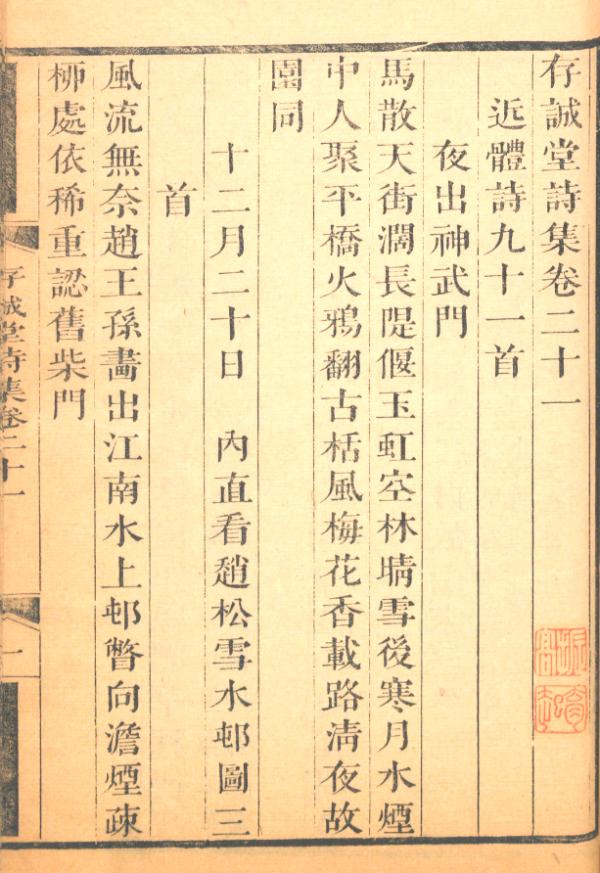 存誠堂詩集卷二十一
近體詩九十一首
夜出神武門
馬散天街濶長隄偃玉虹空林晴雪後寒月水煙
中人聚平橋火鴉翻古栝風梅花香載路淸夜故
園同
十二月二十日　內直看趙松雪水邨圖三
首
風流無奈趙王孫畫出江南水上邨瞥向澹煙疎
柳處依稀重認舊柴門
存誠堂詩集卷二十一
一